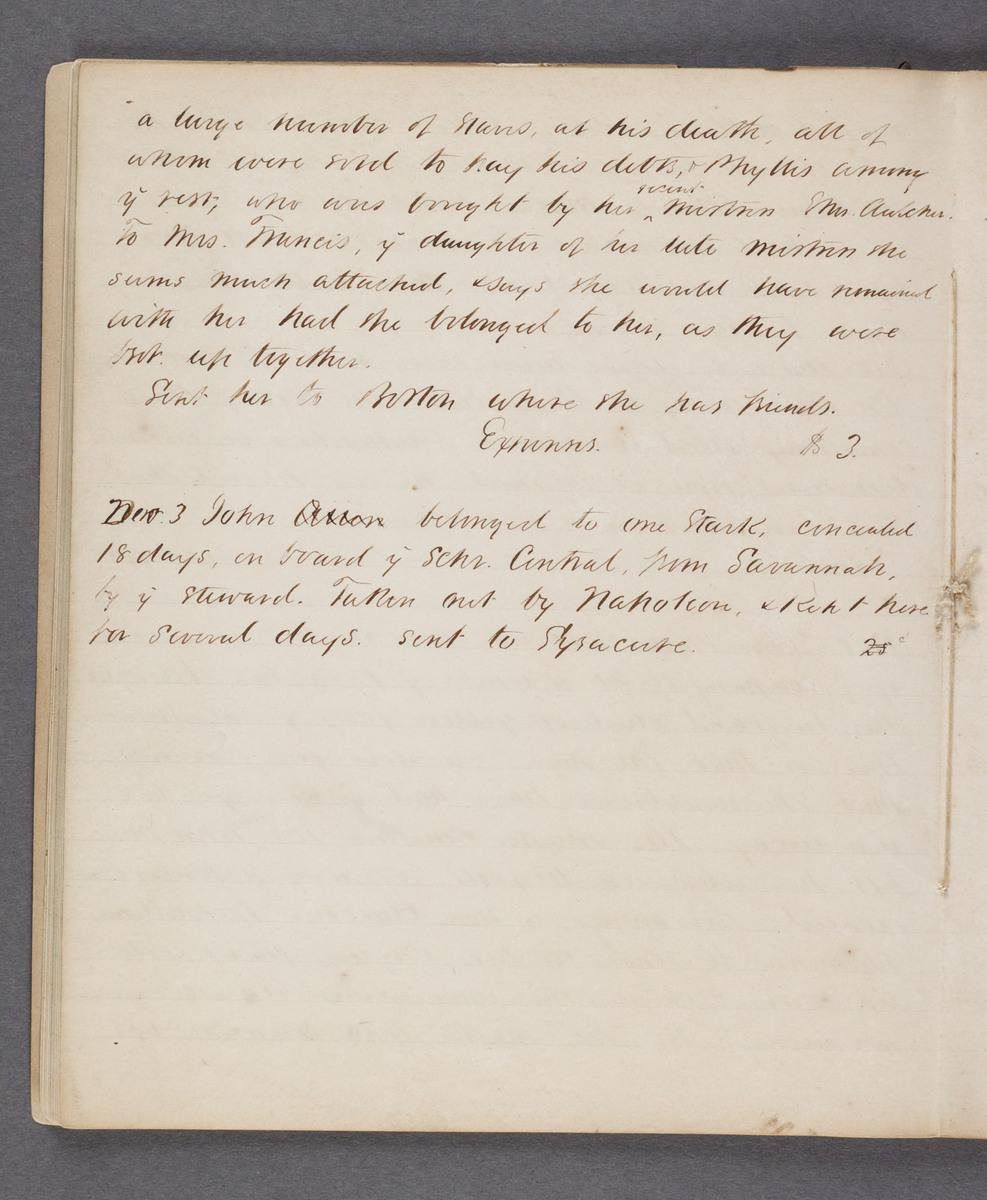 a large number of slaves, at his death, all of
whom were sold to pay his debts, & Phyllis among
ye rest, who was bought by her recent mistress Mrs.
To Mrs. Francis, ye daughter of her late mistress she
seems much attached, & says she would have remained
with her had she belonged to her, as they were
brot. up together.
Sent her to Boston where she has friends.
Expenses. $ 3.
Nov. 3 John belonged to one Stark, concealed
18 days, on board ye Schr. Central, from Savannah,
by ye steward. Taken out by Napoleon, & kept here
for several days. sent to Syracuse. 25c